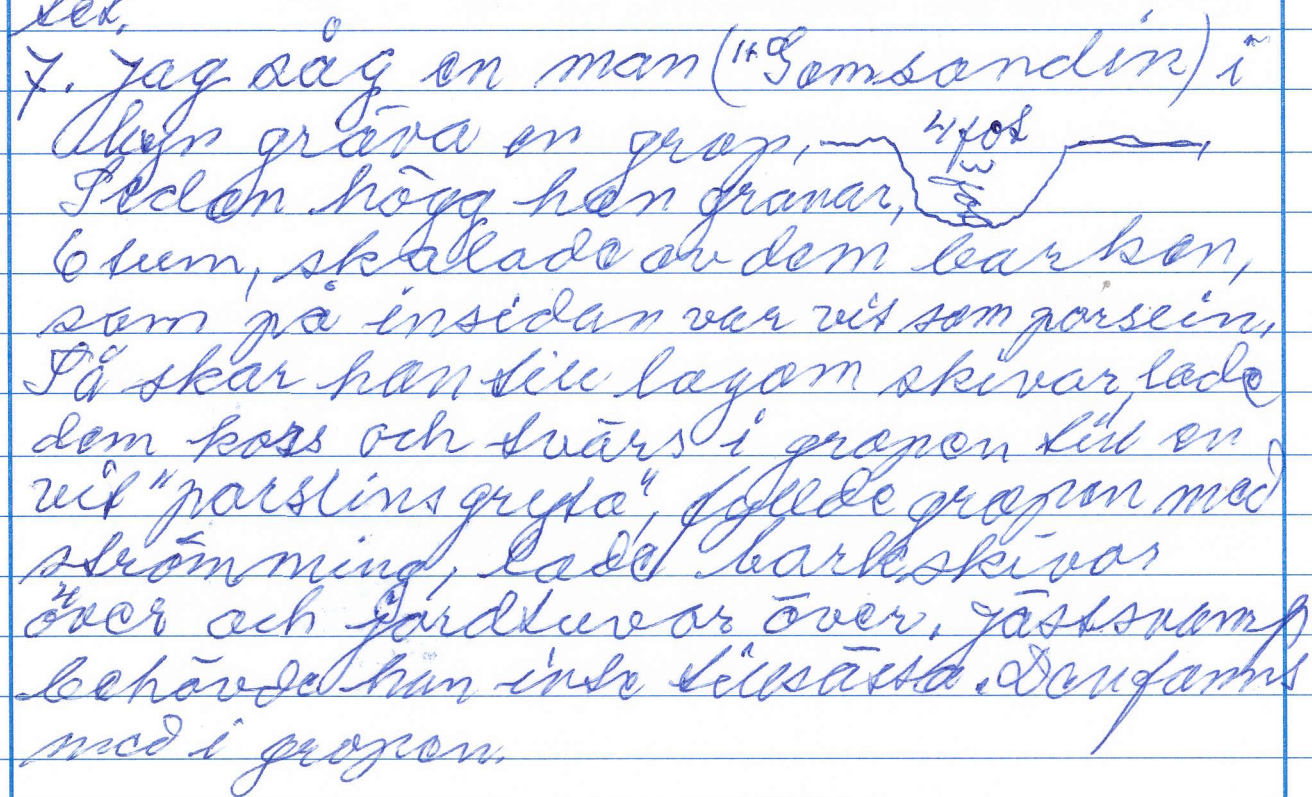 7. Jag såg en man ("Gomsondin) i
byn gräva en grop, 4 fot
Sedan högg han granar,
6 tum, skalade av dem barken,
som på insidan var vit som porslin.
Så skar han till lagom skivor, lade
dem kors och tvärs i gropen till en
vit "porslinsgryta", fyllde gropen med
strömming, lade barkskivor
över och jordtuvor över. Jästsvamp
behövde han inte tillsätta. Den fanns
med i gropen.